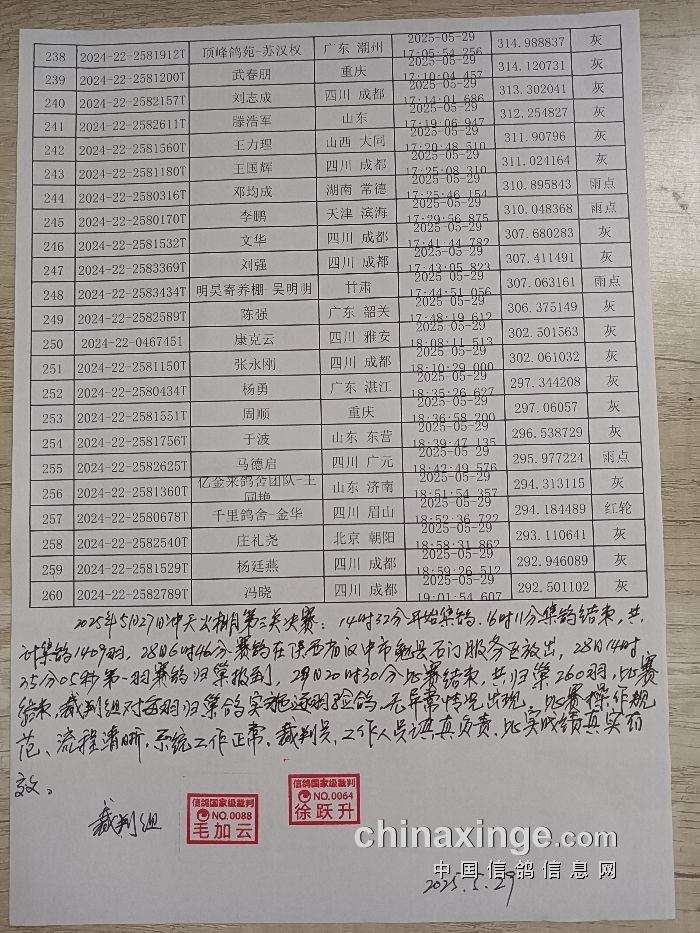 238 2024-22-2581912T 顶峰鸽苑-苏汉权 广东 潮州 2025-05-29 17:05:54.256 314.988837 灰
239 2024-22-2581200T 武春朋 重庆 2025-05-29 17:10:04.457 314.120731 灰
240 2024-22-2582157T 刘志成 四川 成都 2025-05-29 17:14:01.686 313.302041 灰
241 2024-22-2582611T 滕浩军 山东 2025-05-29 17:19:06.947 312.254827 灰
242 2024-22-2581560T 王力理 山西 大同 2025-05-29 17:20:48.510 311.90796 灰
243 2024-22-2581180T 王国辉 四川 成都 2025-05-29 17:25:08.310 311.024164 灰
244 2024-22-2580316T 邓均成 湖南 常德 2025-05-29 17:25:46.154 310.895843 雨点
245 2024-22-2580170T 李鹏 天津 滨海 2025-05-29 17:29:56.875 310.048368 雨点
246 2024-22-2581532T 文华 四川 成都 2025-05-29 17:41:44.782 307.680283 灰
247 2024-22-2583369T 刘强 四川 成都 2025-05-29 17:43:05.823 307.411491 灰
248 2024-22-2583434T 明昊寄养棚-吴明明 甘肃 2025-05-29 17:44:51.056 307.063161 雨点
249 2024-22-2582589T 陈强 广东 韶关 2025-05-29 17:48:19.612 306.375149 灰
250 2024-22-0467451 康克云 四川 雅安 2025-05-29 18:08:11.513 302.501563 灰
251 2024-22-2581150T 张永刚 四川 成都 2025-05-29 18:10:29.000 302.061032 灰
252 2024-22-2580434T 杨勇 广东 湛江 2025-05-29 18:35:26.627 297.344208 灰
253 2024-22-2581551T 周顺 重庆 2025-05-29 18:36:58.200 297.06057 灰
254 2024-22-2581756T 于波 山东 东营 2025-05-29 18:39:47.135 296.538729 灰
255 2024-22-2582625T 马德启 四川 广元 2025-05-29 18:42:49.576 295.977224 雨点
256 2024-22-2581360T 亿金来鸽舍团队-王同艳 山东 济南 2025-05-29 18:51:54.357 294.313115 灰
257 2024-22-2580678T 千里鸽舍-金华 四川 眉山 2025-05-29 18:52:36.722 294.184489 红轮
258 2024-22-2582540T 庄礼尧 北京 朝阳 2025-05-29 18:58:31.862 293.110641 灰
259 2024-22-2581529T 杨廷燕 四川 成都 2025-05-29 18:59:26.512 292.946089 灰
260 2024-22-2582789T 冯晓 四川 成都 2025-05-29 19:01:54.607 292.501102 灰
2025年5月27日冲天公棚第三关决赛：14时32分开始集鸽，16时11分集鸽结束，共
计集鸽1409羽，28日6时46分赛鸽在陕西省汉中市勉县石门服务区放出，28日14时
25分05秒第一羽赛鸽归巢报到，29日20时30分比赛结束，共归巢260羽，比赛
结束，裁判组对每羽归巢鸽实施逐羽验鸽，无异常情况出现。比赛操作规
范、流程清晰，系统工作正常，裁判员，工作人员认真负责，比赛成绩真实有
效。
裁判组
信鸽国家级裁判
NO.0088
毛加云
信鸽国家级裁判
NO.0064
徐跃升
chinaxinge.com
中国信鸽信息网
2025.5.29